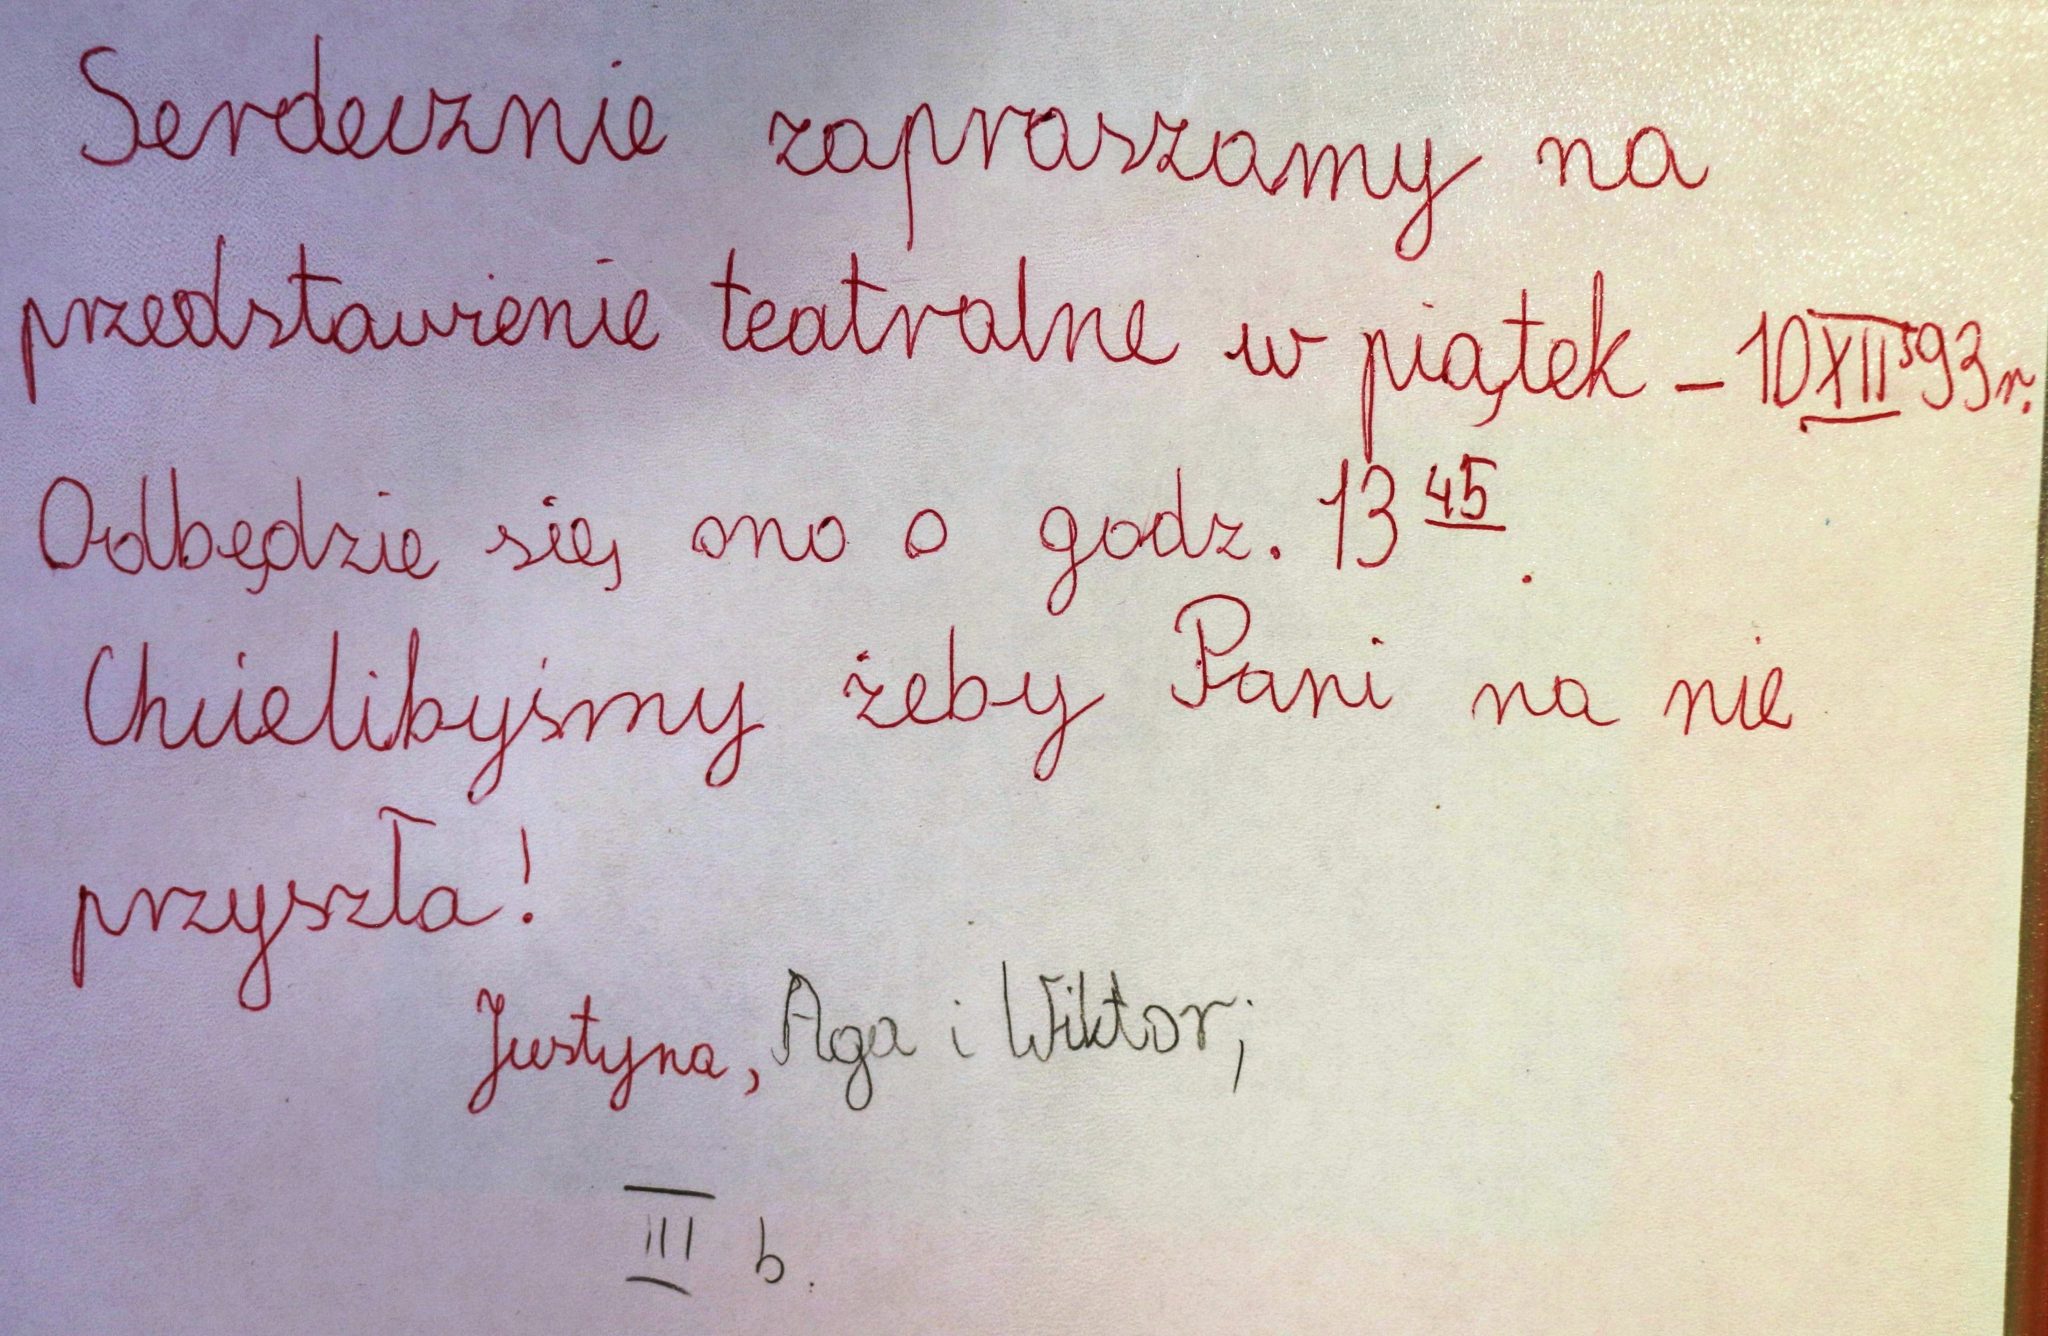 Serdecznie zapraszamy na
przedstawienie teatralne w piątek – 10 XII '93 r.
Odbędzie się ono o godz. 13 45.
Chcielibyśmy żeby Pani na nie
przyszła!
Justyna, Aga i Wiktor;
III b.